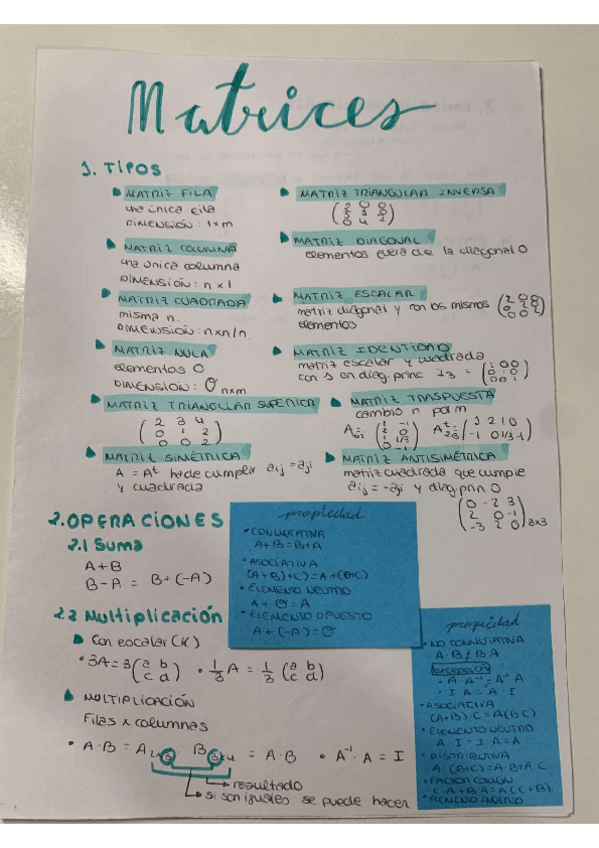 Matrices
1. TIPOS
MATRIZ FILA
una única fila
DIMENSIÓN: 1xm
MATRIZ COLUMNA
una única columna
DIMENSIÓN: n x 1
MATRIZ CUADRADA
misma n.
DIMENSIÓN: nxn/n
MATRIZ NULA
elementos 0
DIMENSIÓN: O nxm
MATRIZ TRIANGULAR SUPERIOR
2 3 4
0 1 2
0 0 2
MATRIZ SIMÉTRICA
A = Aᵗ ha de cumplir aij = aji
y cuadrada
MATRIZ TRIANGULAR INVERSA
MATRIZ DIAGONAL
elementos fuera de la diagonal 0
MATRIZ ESCALAR
matriz diagonal y con los mismos
elementos
MATRIZ IDENTIDAD
matriz escalar y cuadrada
con 1 en diag. princ I3 =
1 0 0
0 0 1
MATRIZ TRASPUESTA
cambio n por m
MATRIZ ANTISIMÉTRICA
matriz cuadrada que cumple
aij = -aji y diag prin 0
0 -2 3
2 0 -1
-3 2 0 3x3
2. OPERACIONES
2.1 Suma
A+B
B-A = B+(-A)
propiedad
• CONMUTATIVA
A+B=B+A
• ASOCIATIVA
(A+B)+C=A+(B+C)
• ELEMENTO NEUTRO
A+O=A
• ELEMENTO OPUESTO
A+(-A)=O
2.2 Multiplicación
Con escalar (K)
• 3A=3(a b c d) • 1/3 A = 1/3 (a b c d)
MULTIPLICACIÓN
Filas x columnas
• A·B = A B = A·B • A⁻¹·A = I
resultado
si son iguales se puede hacer
propiedad
• NO CONMUTATIVA
A·B≠B·A
Excepción
• A·A⁻¹=A⁻¹·A
• I·A=A·I
• ASOCIATIVA
(A·B)·C=A(B·C)
• ELEMENTO NEUTRO
A·I=I·A=A
• DISTRIBUTIVA
A·(B+C)=A·B+A·C
• FACTOR COMÚN
C·A+B·A=A(C+B)
• ELEMENTO INVERSO